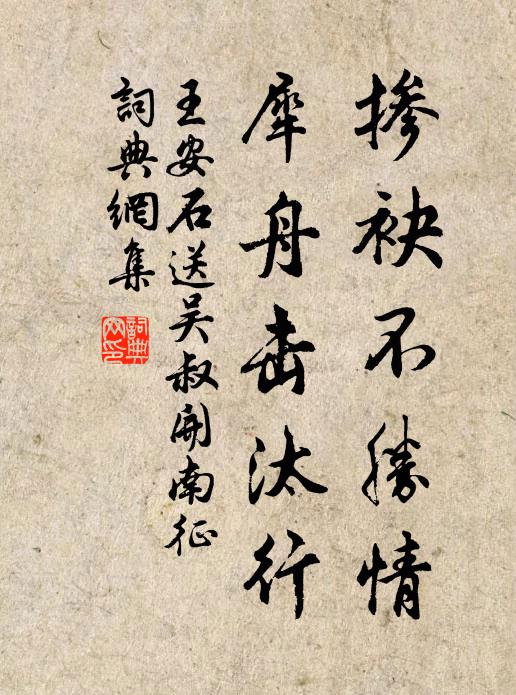 掺袂不勝情
犀舟击汰行
王安石送吴叔開南征
詞典網集
詞典
网印